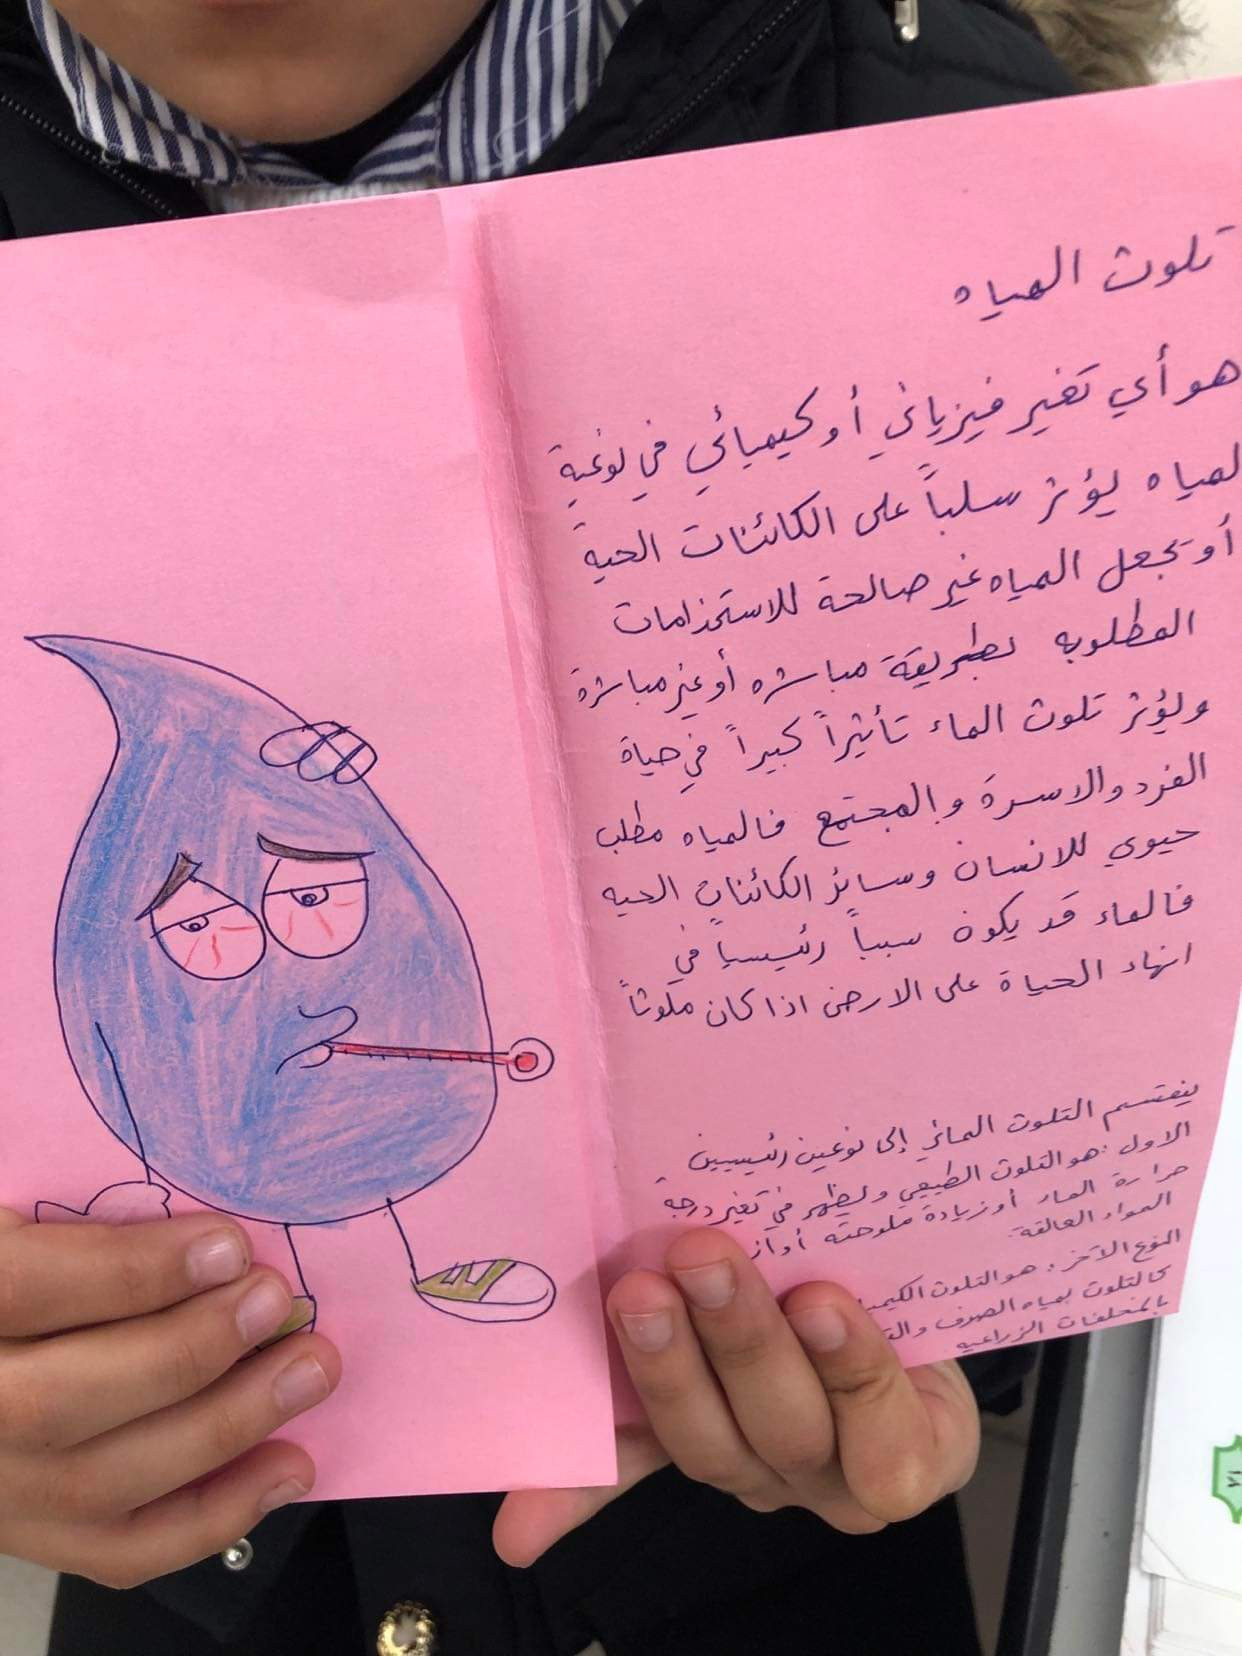 تلوث المياه
هو أي تغير فيزيائي أو كيميائي في نوعية
لمياه يؤثر سلباً على الكائنات الحية
أو تجعل المياه غير صالحة للاستخدامات
المطلوبه بطريقة مباشره أو غير مباشرة
ويؤثر تلوث الماء تأثيراً كبيراً في حياة
الفرد والاسرة والمجتمع فالمياه مطلب
حيوي للانسان وسائر الكائنات الحيه
فالماء قد يكون سبباً رئيسياً في
انهاء الحياة على الارض اذا كان ملوثاً
ينقسم التلوث المائي إلى نوعين رئيسيين
الاول : هو التلوث الطبيعي ويظهر في تغير درجة
حرارة الماء أو زيادة ملوحته أو از
المواد العالقة
النوع الآخر : هو التلوث الكيميا
كالتلوث بمياه الصرف والت
بالمخلفات الزراعيه